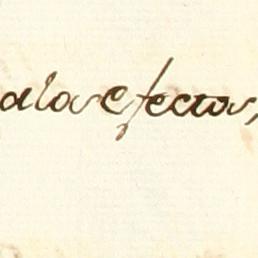 alos efectos,